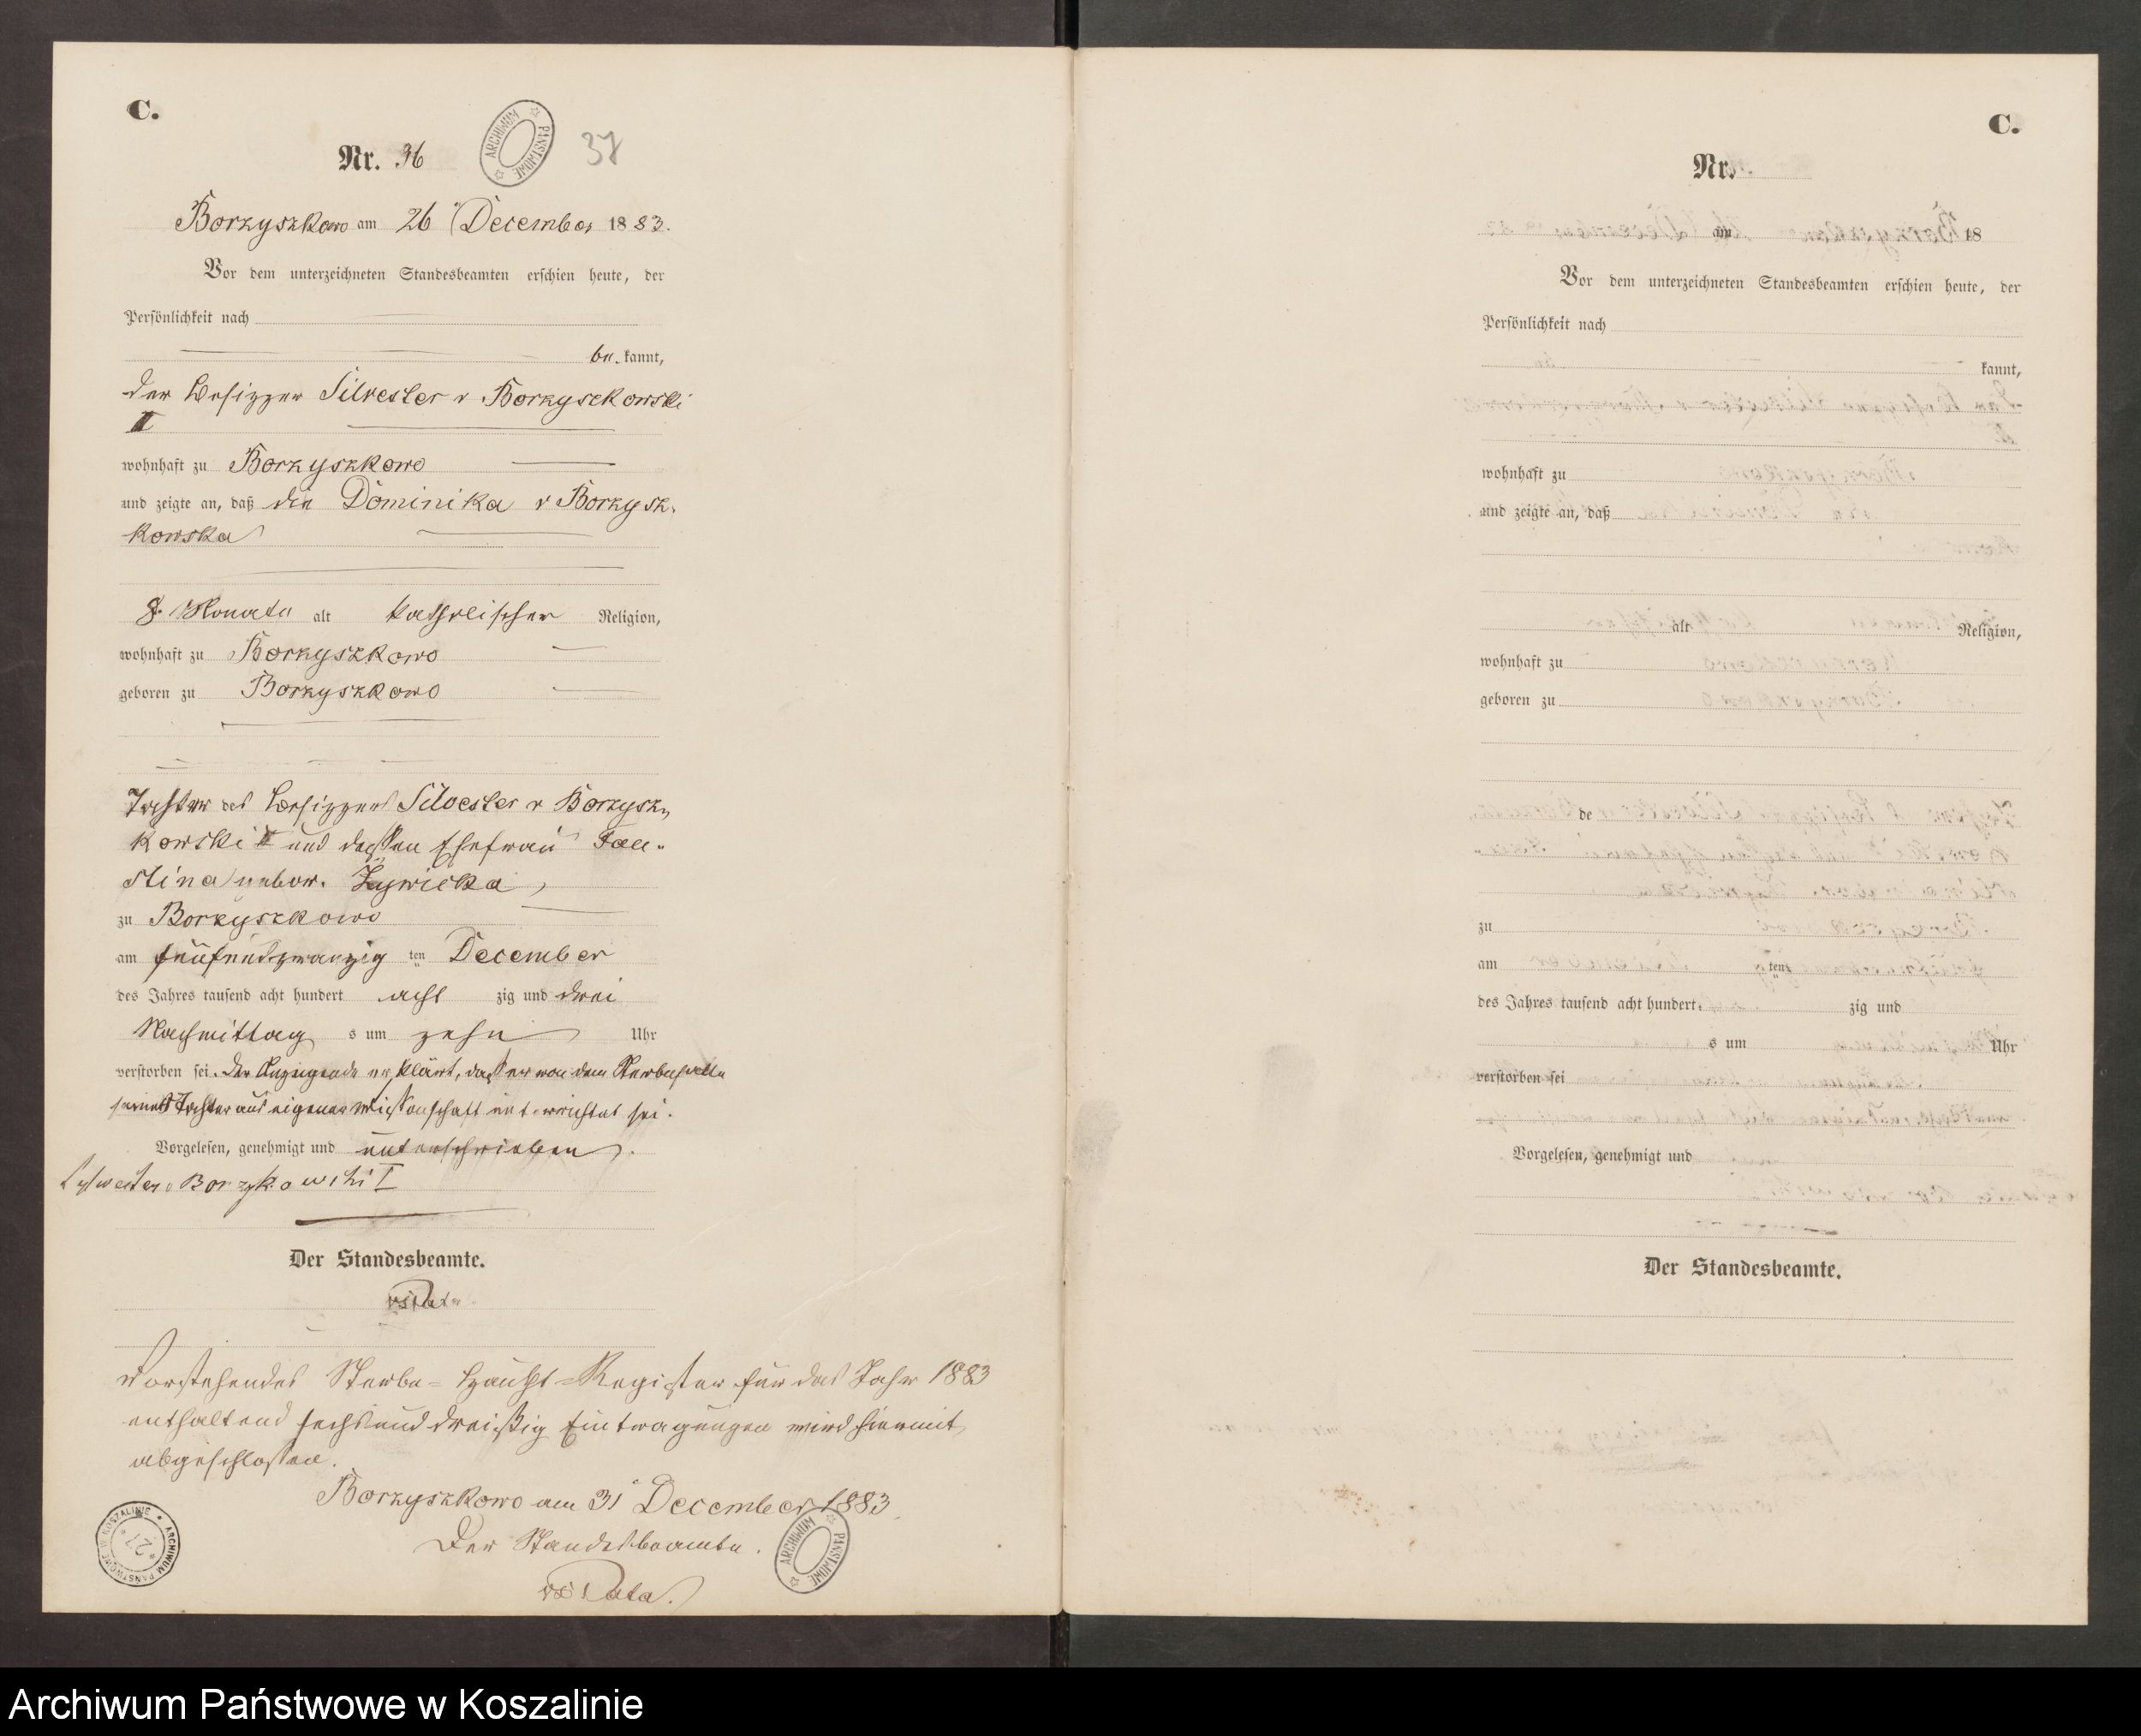 C.
Nr. 36
ARCHIWUM PAŃSTWOWE
37
Borzyszkowo am 26 December 1883.
Vor dem unterzeichneten Standesbeamten erschien heute, der
Persönlichkeit nach
be kannt,
der Besitzer Silvester v Borzyszkowski
II
wohnhaft zu Borzyszkowo
und zeigte an, daß die Dominika v Borzysz-
kowska
8. Monate alt katholischer Religion,
wohnhaft zu Borzyszkowo
geboren zu Borzyszkowo
Tochter des Besitzers Silvester v Borzysz-
kowski II und dessen Ehefrau Fau-
stina gebor. Zywicka,
zu Borzyszkowo
am fünfundzwanzig ten December
des Jahres tausend acht hundert acht zig und drei
Nachmittag s um zehn Uhr
verstorben sei. Der Anzeigende erklärt, daß er von dem Sterbefalle
seiner Tochter aus eigener Wissenschaft unterrichtet sei.
Vorgelesen, genehmigt und unterschrieben.
Der Standesbeamte.
Vorstehendes Sterbe-Haupt-Register für das Jahr 1883
enthaltend sechsunddreißig Eintragungen wird hiermit
abgeschlossen.
Borzyszkowo am 31 December 1883
Der Standesbeamte.
ARCHIWUM PAŃSTWOWE W KOSZALINIE
27
ARCHIWUM PAŃSTWOWE
C.
Nr.
am 18
Vor dem unterzeichneten Standesbeamten erschien heute, der
Persönlichkeit nach
kannt,
wohnhaft zu
und zeigte an, daß
alt Religion,
wohnhaft zu
geboren zu
de
zu
am ten
des Jahres tausend acht hundert zig und
s um Uhr
verstorben sei
Vorgelesen, genehmigt und
Der Standesbeamte.
Archiwum Państwowe w Koszalinie